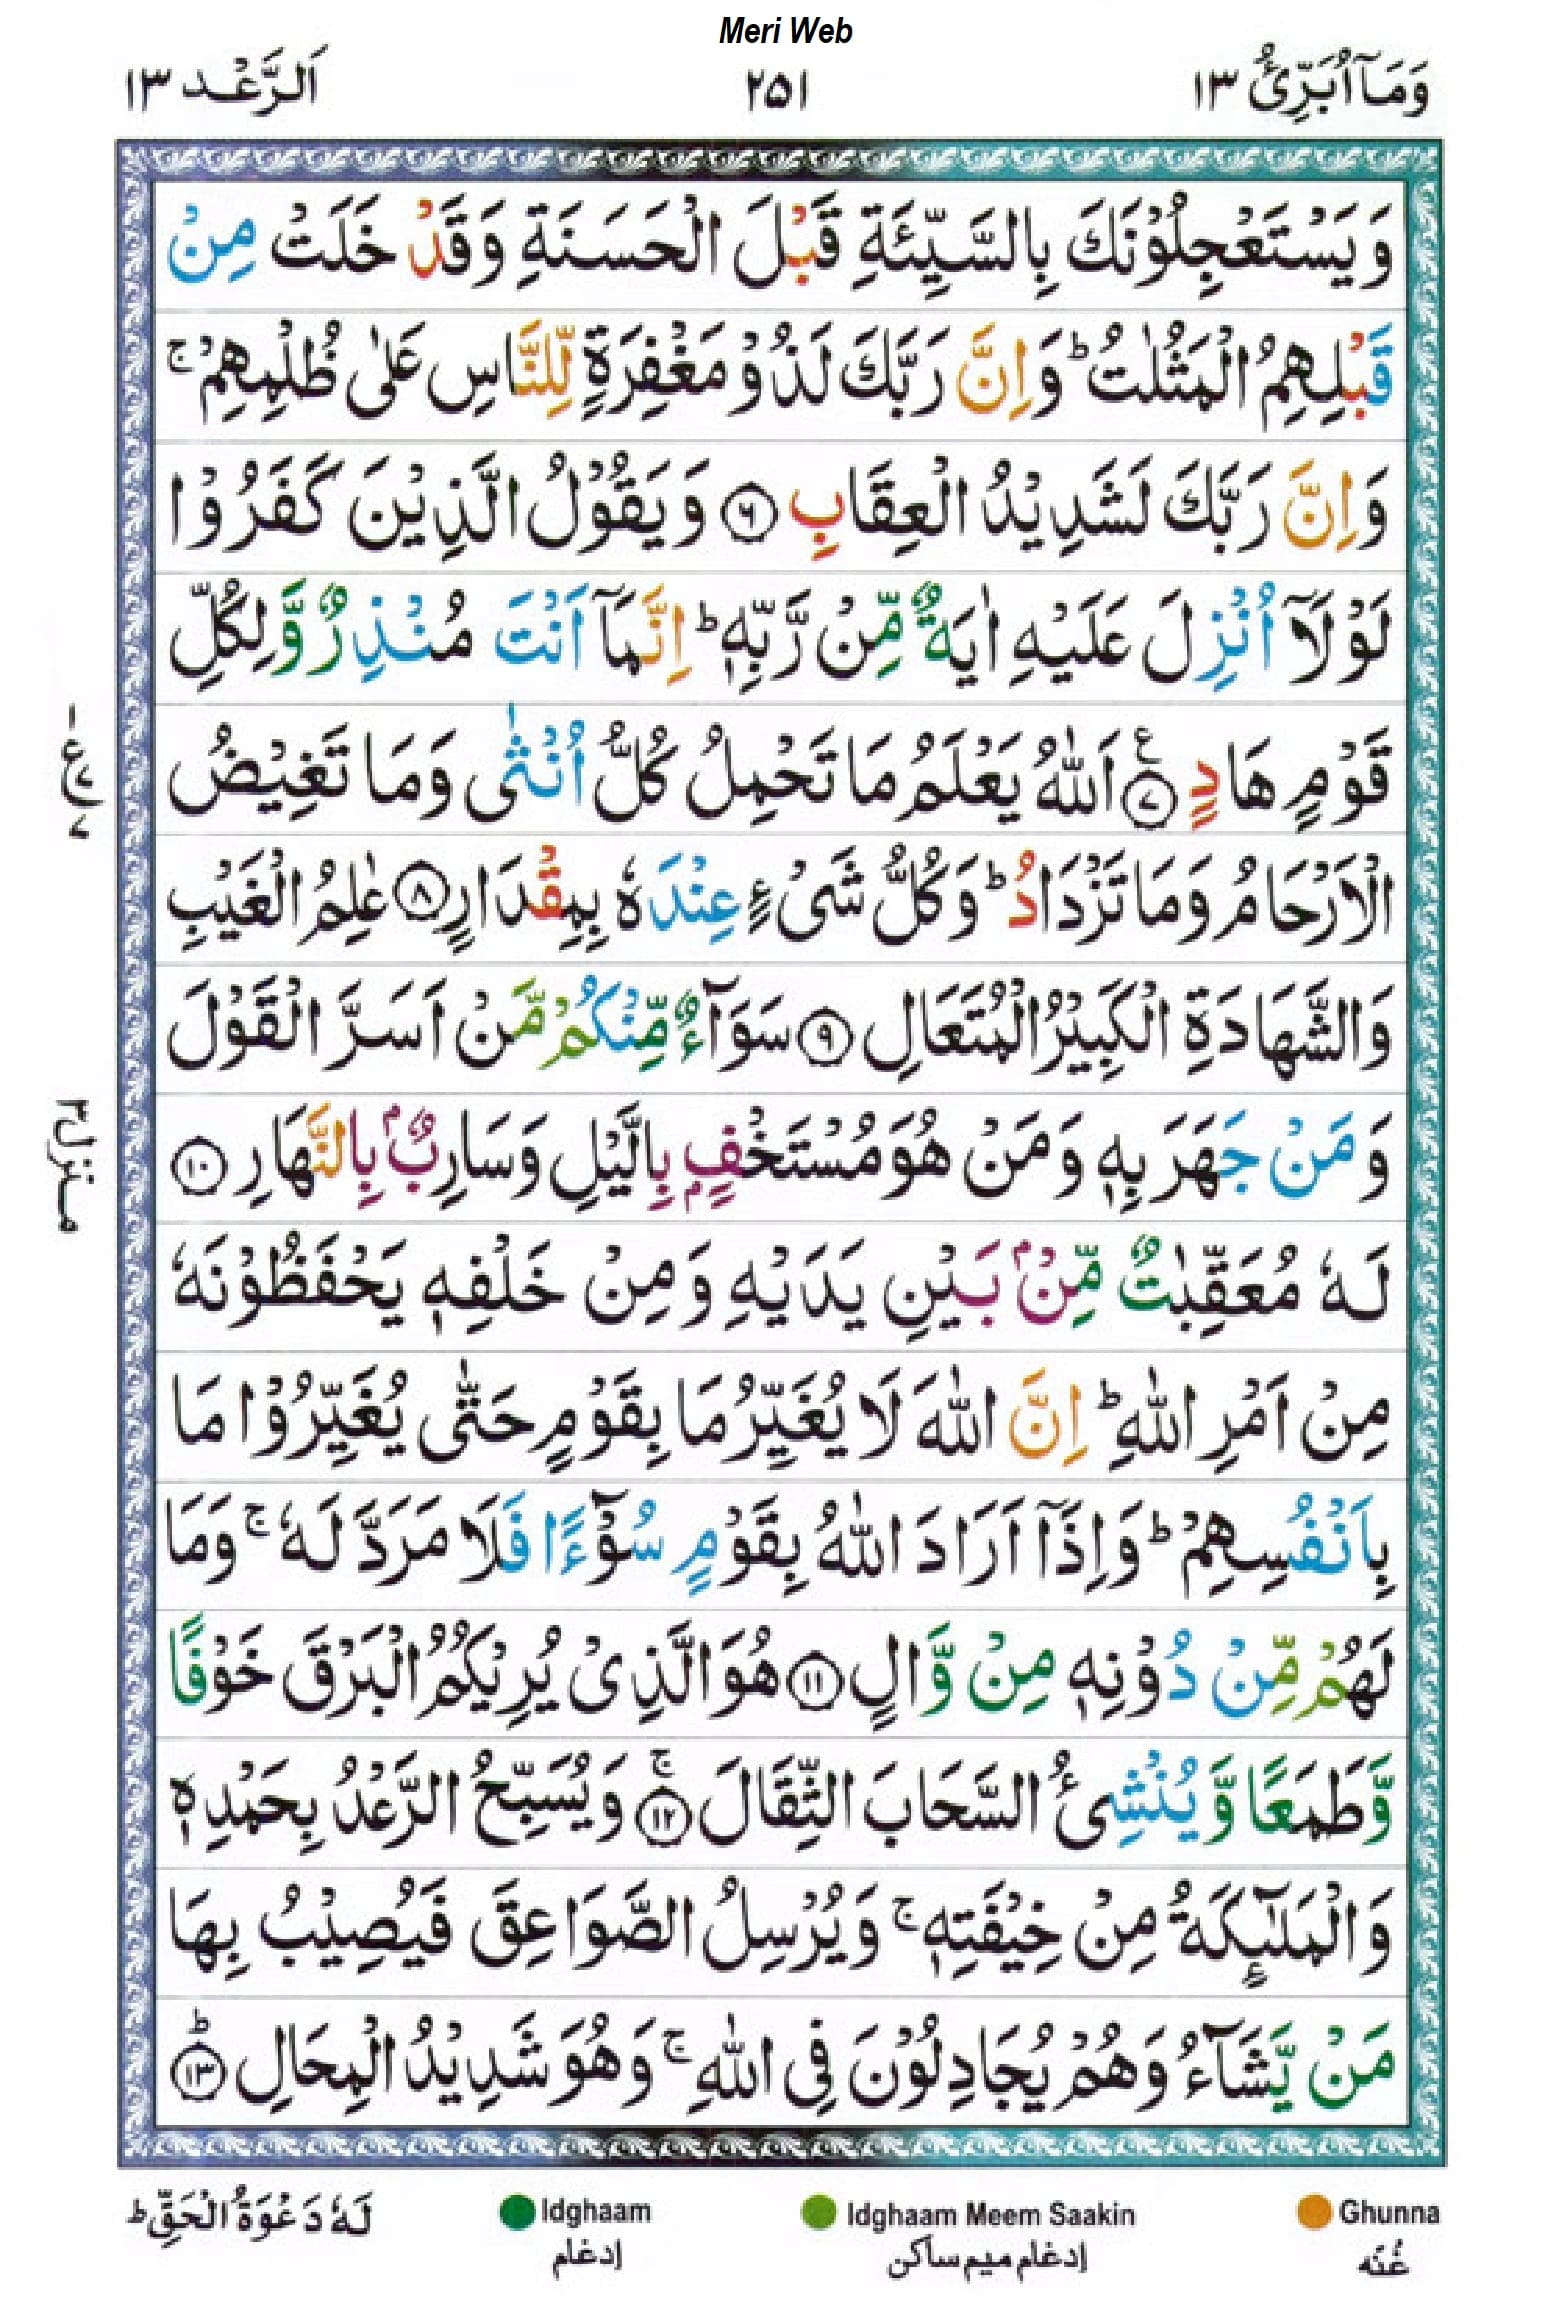 Meri Web
وَمَآ اُبَرِّئُ ١٣
٢٥١
اَلرَّعْد ١٣
وَيَسْتَعْجِلُوْنَكَ بِالسَّيِّئَةِ قَبْلَ الْحَسَنَةِ وَقَدْ خَلَتْ مِنْ
قَبْلِهِمُ الْمَثُلٰتُ ؕ وَاِنَّ رَبَّكَ لَذُوْ مَغْفِرَةٍ لِّلنَّاسِ عَلٰى ظُلْمِهِمْ ۚ
وَاِنَّ رَبَّكَ لَشَدِيْدُ الْعِقَابِ ۝۶ وَيَقُوْلُ الَّذِيْنَ كَفَرُوْا
لَوْلَآ اُنْزِلَ عَلَيْهِ اٰيَةٌ مِّنْ رَّبِّهٖ ؕ اِنَّمَآ اَنْتَ مُنْذِرٌ وَّلِكُلِّ
قَوْمٍ هَادٍ ۝۷ اَللّٰهُ يَعْلَمُ مَا تَحْمِلُ كُلُّ اُنْثٰى وَمَا تَغِيْضُ
الْاَرْحَامُ وَمَا تَزْدَادُ ؕ وَكُلُّ شَىْءٍ عِنْدَهٗ بِمِقْدَارٍ ۝۸ عٰلِمُ الْغَيْبِ
وَالشَّهَادَةِ الْكَبِيْرُ الْمُتَعَالِ ۝۹ سَوَآءٌ مِّنْكُمْ مَّنْ اَسَرَّ الْقَوْلَ
وَمَنْ جَهَرَ بِهٖ وَمَنْ هُوَ مُسْتَخْفٍۭ بِالَّيْلِ وَسَارِبٌۢ بِالنَّهَارِ ۝۱۰
لَهٗ مُعَقِّبٰتٌ مِّنْۢ بَيْنِ يَدَيْهِ وَمِنْ خَلْفِهٖ يَحْفَظُوْنَهٗ
مِنْ اَمْرِ اللّٰهِ ؕ اِنَّ اللّٰهَ لَا يُغَيِّرُ مَا بِقَوْمٍ حَتّٰى يُغَيِّرُوْا مَا
بِاَنْفُسِهِمْ ؕ وَاِذَآ اَرَادَ اللّٰهُ بِقَوْمٍ سُوْٓءًا فَلَا مَرَدَّ لَهٗ ۚ وَمَا
لَهُمْ مِّنْ دُوْنِهٖ مِنْ وَّالٍ ۝۱۱ هُوَ الَّذِىْ يُرِيْكُمُ الْبَرْقَ خَوْفًا
وَّطَمَعًا وَّيُنْشِئُ السَّحَابَ الثِّقَالَ ۝۱۲ۚ وَيُسَبِّحُ الرَّعْدُ بِحَمْدِهٖ
وَالْمَلٰٓئِكَةُ مِنْ خِيْفَتِهٖ ۚ وَيُرْسِلُ الصَّوَاعِقَ فَيُصِيْبُ بِهَا
مَنْ يَّشَآءُ وَهُمْ يُجَادِلُوْنَ فِى اللّٰهِ ۚ وَهُوَ شَدِيْدُ الْمِحَالِ ۝۱۳ؕ
منزل ۳
لَهٗ دَعْوَةُ الْحَقِّ ؕ
Idghaam
إدغام
Idghaam Meem Saakin
إدغام ميم ساكن
Ghunna
غُنّه